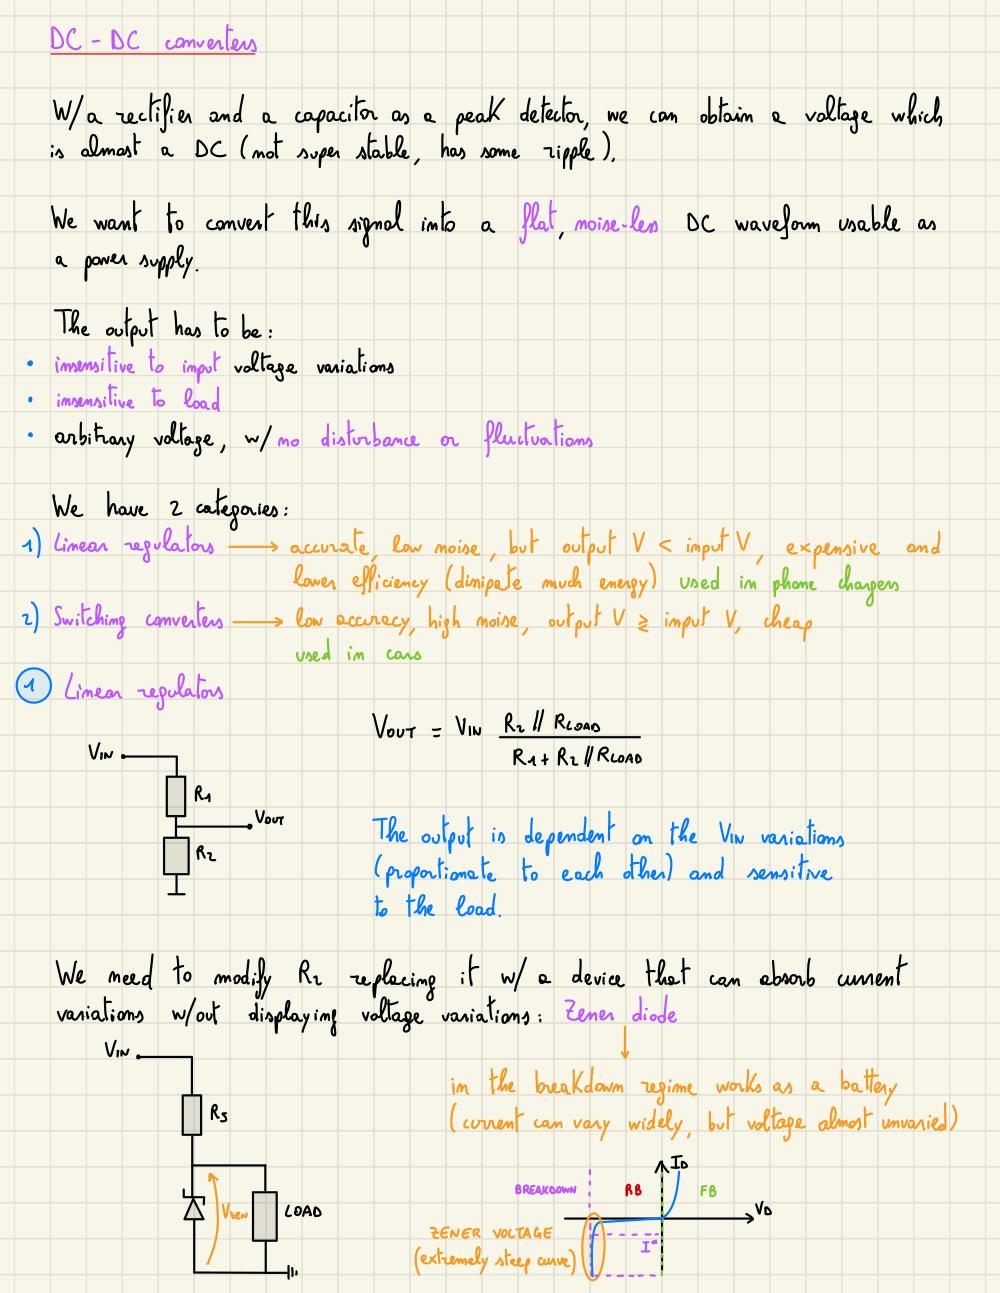 DC-DC converters
W/a rectifier and a capacitor as a peak detector, we can obtain a voltage which
is almost a DC (not super stable, has some ripple).
We want to convert this signal into a flat, noise-less DC waveform usable as
a power supply.
The output has to be:
• insensitive to input voltage variations
• insensitive to load
• arbitrary voltage, w/ no disturbance or fluctuations
We have 2 categories:
1) Linear regulators → accurate, low noise, but output V < input V, expensive and
lower efficiency (dissipate much energy) used in phone chargers
2) Switching converters → low accuracy, high noise, output V ≷ input V, cheap
used in cars
1 Linear regulators
VOUT = VIN R2 // RLOAD
R1 + R2 // RLOAD
VIN
R1
VOUT
R2
The output is dependent on the VIN variations
(proportionate to each other) and sensitive
to the load.
We need to modify R2 replacing it w/ a device that can absorb current
variations w/out displaying voltage variations: Zener diode
VIN
in the breakdown regime works as a battery
(current can vary widely, but voltage almost unvaried)
RS
ID
BREAKDOWN RB FB
VZEN
LOAD
VD
ZENER VOLTAGE
(extremely steep curve)
I*